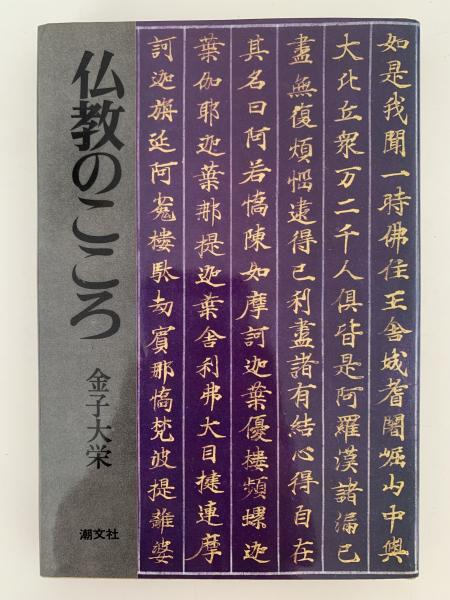 仏教のこころ
金子大栄
潮文社
如是我聞一時佛住王舎城耆闍崛山中與
大比丘衆万二千人倶皆是阿羅漢諸漏已
盡無復煩惱逮得己利盡諸有結心得自在
其名曰阿若憍陳如摩訶迦葉優樓頻螺迦
葉伽耶迦葉那提迦葉舎利弗大目揵連摩
訶迦旃延阿㝹樓駄劫賓那憍梵波提離婆